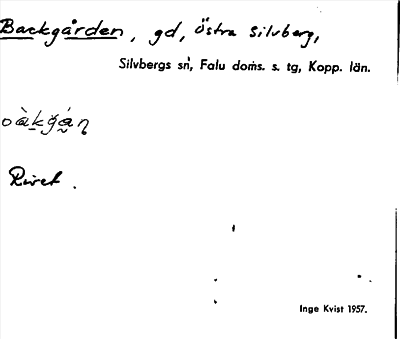 Backgården, gd, Östra Silvberg,
Silvbergs sn, Falu doms. s. tg, Kopp. län.
Rivet.
Inge Kvist 1957.